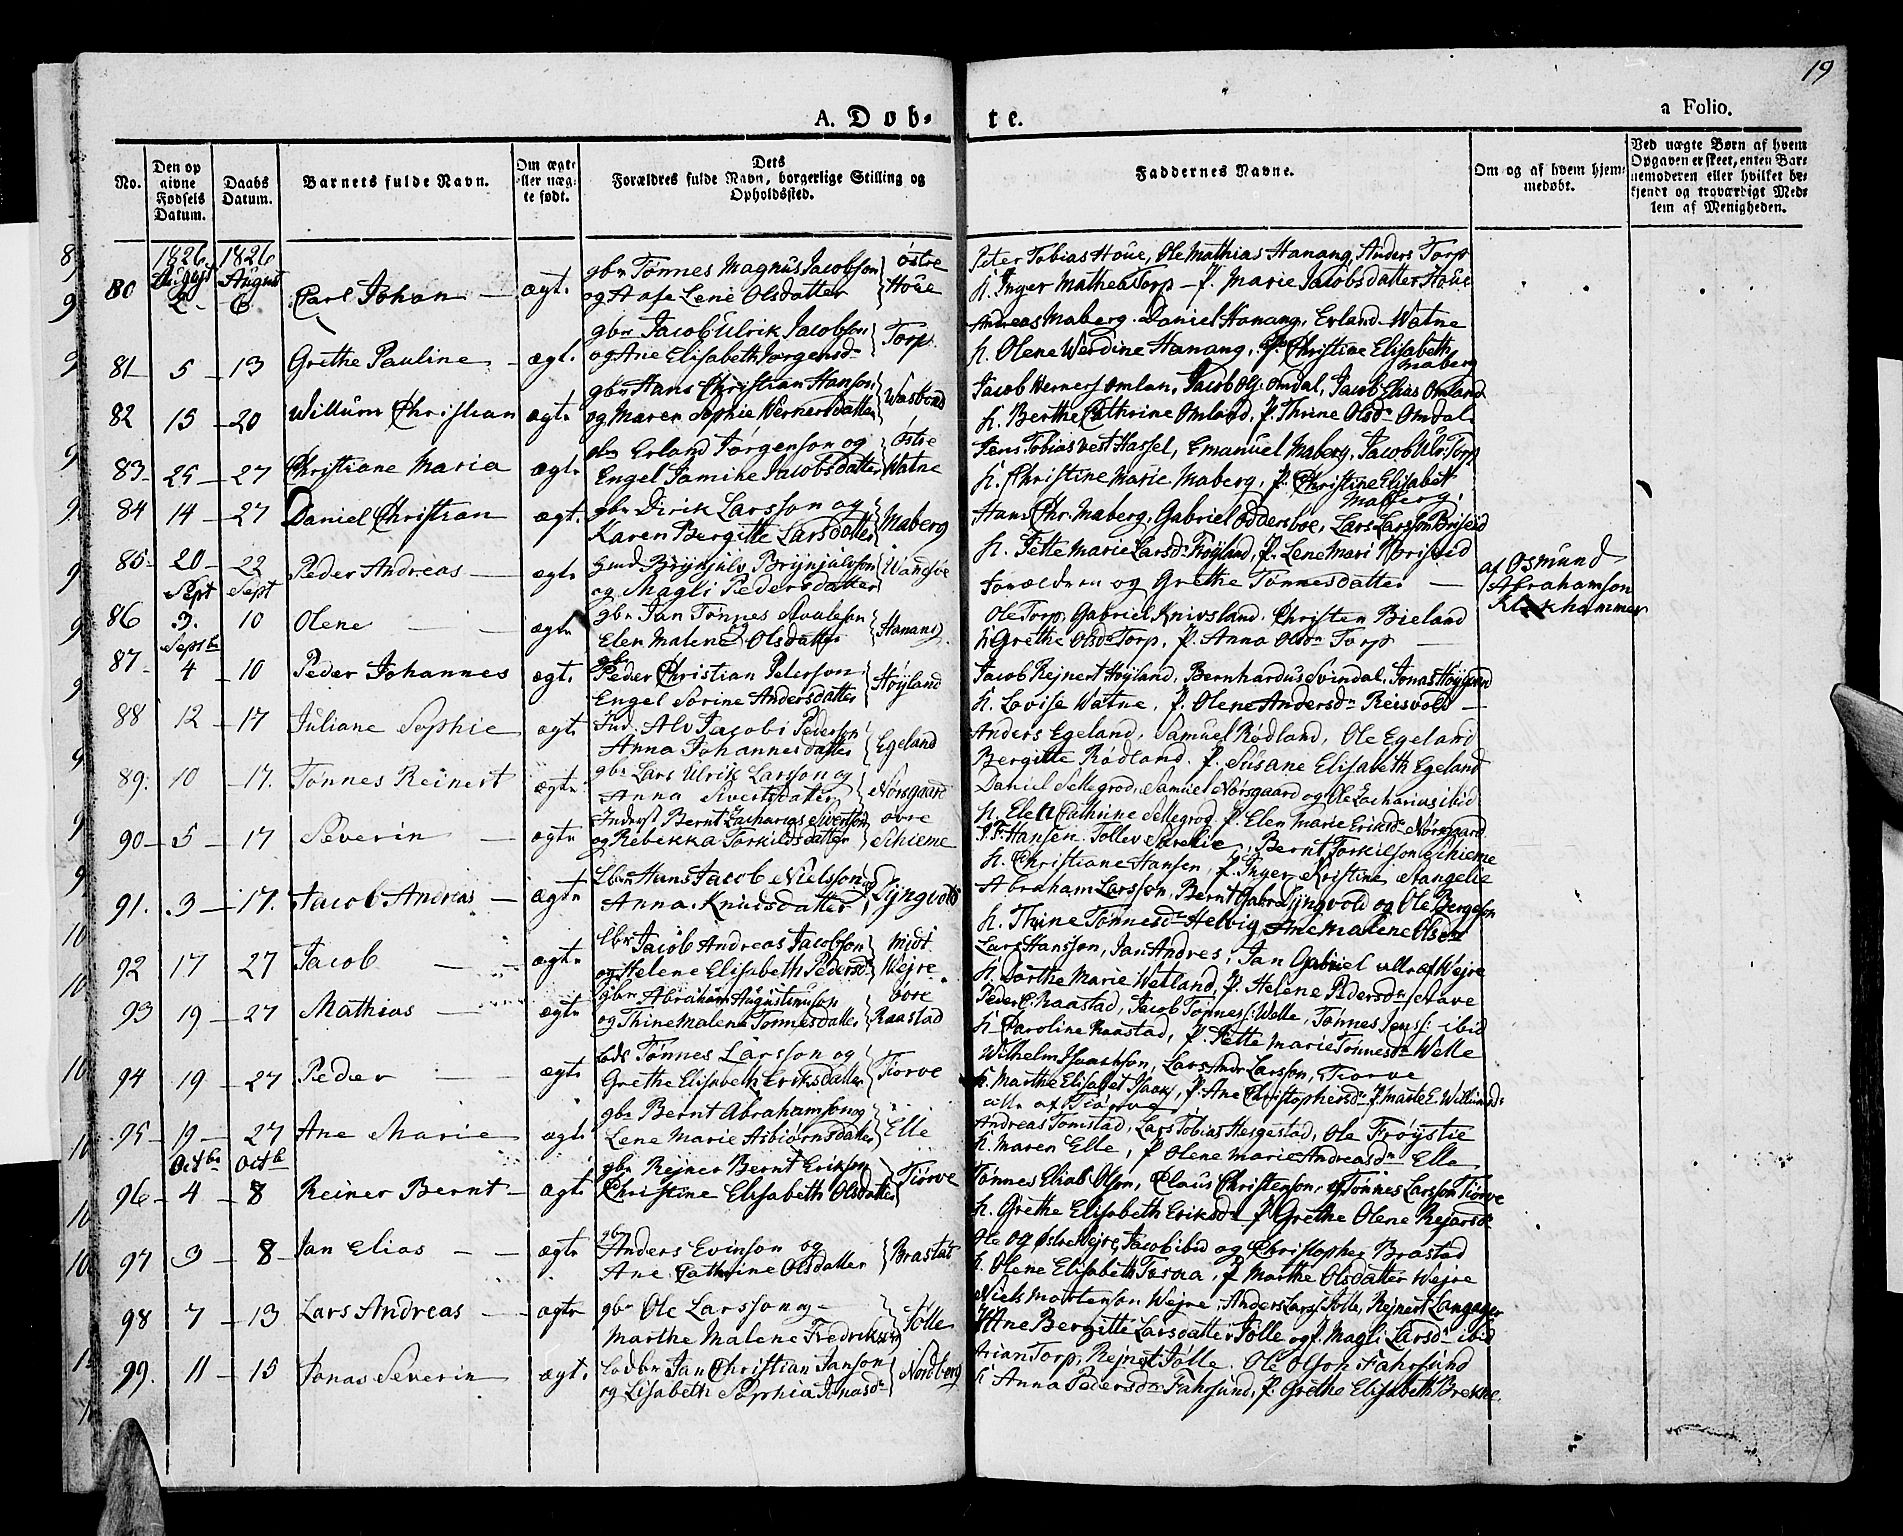 19
A. Døb- te.
a Folio.
No.
Den op givne Fødsels Datum.
Daabs Datum.
Barnets fulde Navn.
Om ægte eller uægte født.
Dets Forældres fulde Navn, borgerlige Stilling og Opholdssted.
Faddernes Navne.
Om og af hvem hjemmedøbt.
Ved uægte Børn af hvem Opgaven er skeet, enten Barnemoderen eller hvilket bekjendt og troværdigt Medlem af Menigheden.
1826 1826
80 August 2 - August 6 Carl Johan - ægt. gbr Tønnes Magnus Jacobson og Aase Lene Olsdatter østre Houe
Peter Tobias Houe, Ole Mathias Hanang, Anders Torp
K. Inger Mathea Torp - P. Marie Jacobsdatter Houe
81 - 5 - 13 Grethe Pauline - ægt. gbr Jacob Ulrik Jacobson og Ane Elisabeth Jørgensd. Torp
Andreas Maberg. Daniel Hanang, Erland Watne
K. Olene Werdine Hanang, P. Christine Elisabeth Maberg
82 15 - 20 Willum Christian ægt. gbr Hans Christian Hanson og Maren Sophie Wernersdatter
Jacob Werners Omlan, Jacob Ols. Omdal, Jacob Elias Omland
K. Berthe Cathrine Omland, P. Thrine Olsd. Omdal
83 - 25 - 27 Christiane Maria ægt. Erland Jørgenson og Engel Jamine Jacobsdatter østre Watne
Jens Tobias vest Hassel, Emanuel Maberg, Jacob Ulr. Torp
K. Christine Marie Maberg, P. Christine Elisabet Maberg.
84 14 - 27 Daniel Christian ægt. gbr Dirik Larsson og Karen Bergitte Larsdatter Maberg
Hans Chr. Maberg, Gabriel Oddersboe, Lars Larsson Briseid
K. Tette Marie Larsd. Frøyland, P. Lene Mari Briseid
85 - 20 - 22 Peder Andreas - ægt. Brynjulv Brynjulvson og Magli Pedersdatter
Forældrene og Grethe Tønnesdatter -
af Osmund Abrahamson Klokhammer
Sept Sept
86 3. 10 Olene - - ægt. gbr Jan Tønnes Avaleson og Elen Malene Olsdatter Hanang
Ole Torp, Gabriel Knivsland, Christen Bieland
K. Grethe Olsd. Torp, P. Anna Olsd. Torp -
Septb
87 - 4 - 10 Peder Johannes ægt. gbr Peder Christian Peterson Engel Sorine Andersdatter Høyland
Jacob Rejnert Høyland, Bernhardus Svindal, Jonas Høyland
K. Lovise Watne, P. Olene Andersd. Reisvold -
88 12 - 17 Juliane Sophie ægt. Ind. Alv Jacobi Pederson Anna Johannesdatter Egeland
Anders Egeland, Samuel Rødland, Ole Egeland
Bergitte Rødland. P. Susane Elisabeth Egeland
89. 10 - 17. Tønnes Reinert ægt. gbr Lars Ulrik Larsson og Anna Sivertsdatter Norsgaard
Daniel Sellegrod, Samuel Norsgaard og Ole Zacharius ibid
K. Elen Cathrine Sellegrod, P. Elen Marie Eriksd. Norsgaard
90 - 5 - 17 Severin - ægt. Bernt Zacharias Siverson og Rebekka Torkildsdatter øvre Schieme
Hansen. Tollev Aarelie, Bernt Torkilson Schieme
K. Christiane Hansen, P. Inger Kristine Aangelie
91. 3 - 17. Jacob Andreas - ægt. Lbr Hans Jacob Nielsson og Anna Knudsdatter Lyngvold
Abraham Larsson, Bernt Gabr. Lyngvold og Ole Bergeson
K. Thrine Tønnesd. Helvig, Ane Malene Olsd.
92 17 - 27 Jacob - - ægt. Lbr Jacob Andreas Jacobson og Helene Elisabeth Pedersd. Midt Wejre
Lars Hansson, Jan Andres, Jan Gabriel alle af Wejre
K. Dorthe Marie Wetland, P. Helene Pedersd. Aave
93 19 - 27 Mathias - ægt. gbr Abraham Augustinuson og Thine Malene Tønnesdatter øvre Raastad
Peder C. Raastad, Jacob Tønness. Welle, Tønnes Jenss. ibid
K. Caroline Raastad, P. Tette Marie Tønnesd. Welle
94 19 - 27 Peder - - ægt. Lods Tønnes Larsson og Grethe Elisabeth Eriksdatter Tiørve
Wilhelm Isaachson, Lars Andr. Larsson, Tiorve
K. Marthe Elisabet Isaaks, P. Ane Christophersd. P. Marte E. Willumsd.
alle af Tiørve
95 - 19 - 27 Ane Marie ægt. gbr Bernt Abrahamson og Lene Marie Asbiørnsdatter Elle
Andreas Tomstad, Lars Tobias Hesgestad, Ole Frøystie
K. Maren Elle, P. Olene Marie Andreasd. Elle
Octbr Octb
96 - 4 - 8 Reiner Bernt - ægt. gbr Rejner Bernt Erikson Christine Elisabeth Olsdatter Tiørve
Tønnes Elias Olson, Claus Christenson, og Tønnes Larsson Tiørve
K. Grethe Elisabeth Eriksd. P. Grethe Olene Rejersd.
97 3 - 8 - Jan Elias - - ægt. gbr Anders Evinson og Ane Cathrine Olsdatter Brastad
Ole og Østre Wejre, Jacob ibid og Christopher Brastad
K. Olene Elisabeth Tusvia, P. Marthe Olsdatter Wejre
98 7 - 13 Lars Andreas - ægt. gbr Ole Larsson og Marthe Malene Fredriksd. Jølle
Niels Mortenson Wejre, Anders Larss. Jølle, Rejnert Langager
K. Ane Bergitte Larsdatter Jølle og P. Magli Larsd. ibid
99. 11 - 15 Jonas Severin ægt. Lodbr. Jan Christian Janson og Lisabeth Sophia Jonasd. Nordberg
Arian Torp, Rejnert Jølle. Ole Olson Fahrsund
K. Anna Pedersd. Fahrsund, P. Grethe Elisabeth Brekne